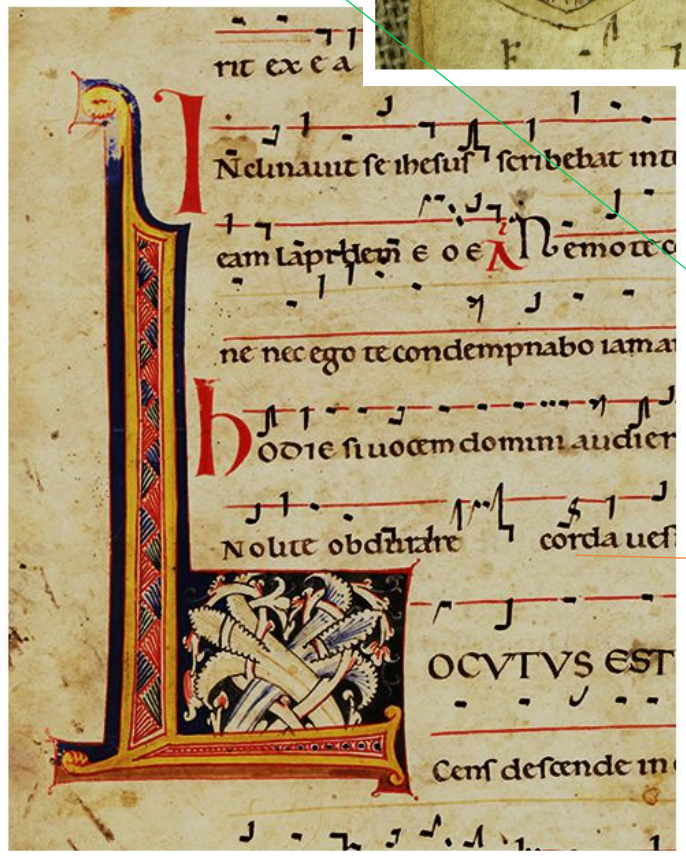 rit ex e a
INclinauit ſe iheſuſ ſcribebat int
eam e o e A Nemo te
ne nec ego te condempnabo iam a
hodie ſi uocem domini audier
Nolite obdurare corda ueſ
LOCVTVS EST
Cenſ deſcende in